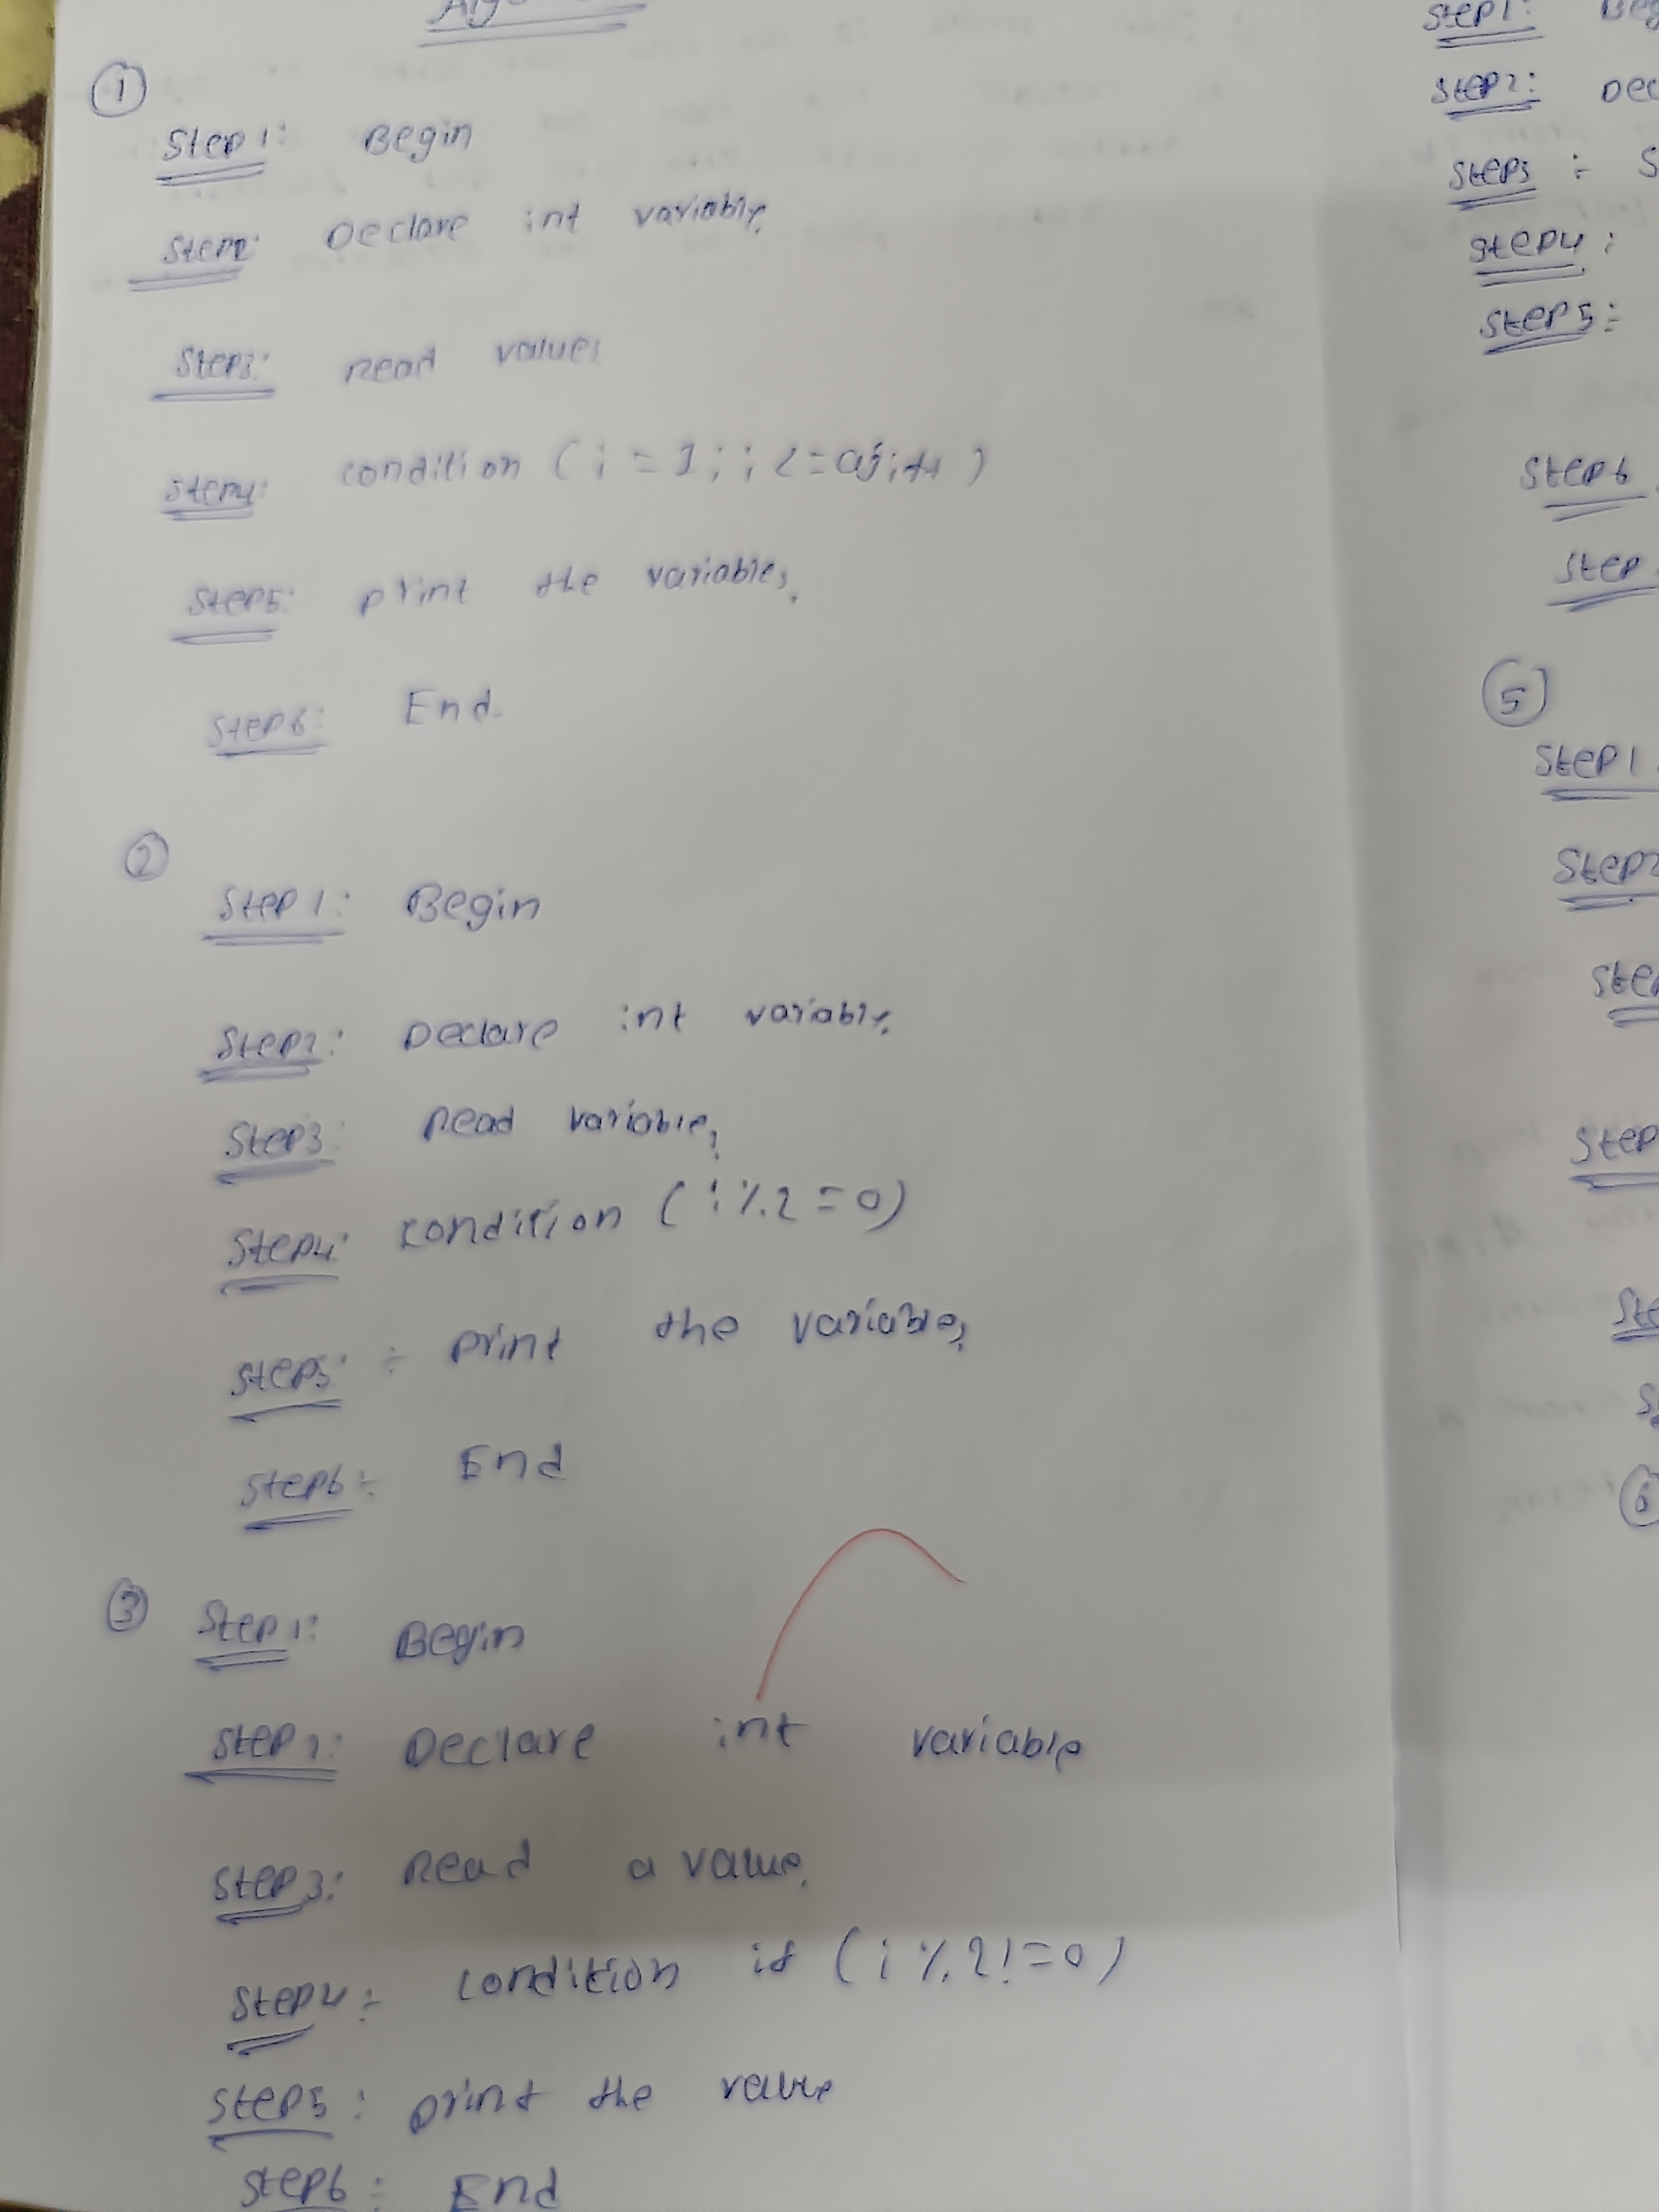 ①
Step 1: Begin
Step2: Declare int variable.
Step3: Read values
Step4: condition (i = 1; i <= a; i++)
Step5: print the variables.
Step6: End.
②
Step 1: Begin
Step2: Declare int variable.
Step3: Read variable,
Step4: condition (i % 2 = 0)
Step5: ÷ print the variable,
Step6 ÷ End
③ Step 1: Begin
Step 2: Declare int variable
Step 3: Read a value.
Step4 ÷ condition if (i % 2 != 0)
Step5 : print the value
Step6 ÷ End
Step 1:
Step2:
Step3 ÷
Step4 :
Step5 ÷
Step6
Step
⑤
Step 1
Step2
Step
⑥